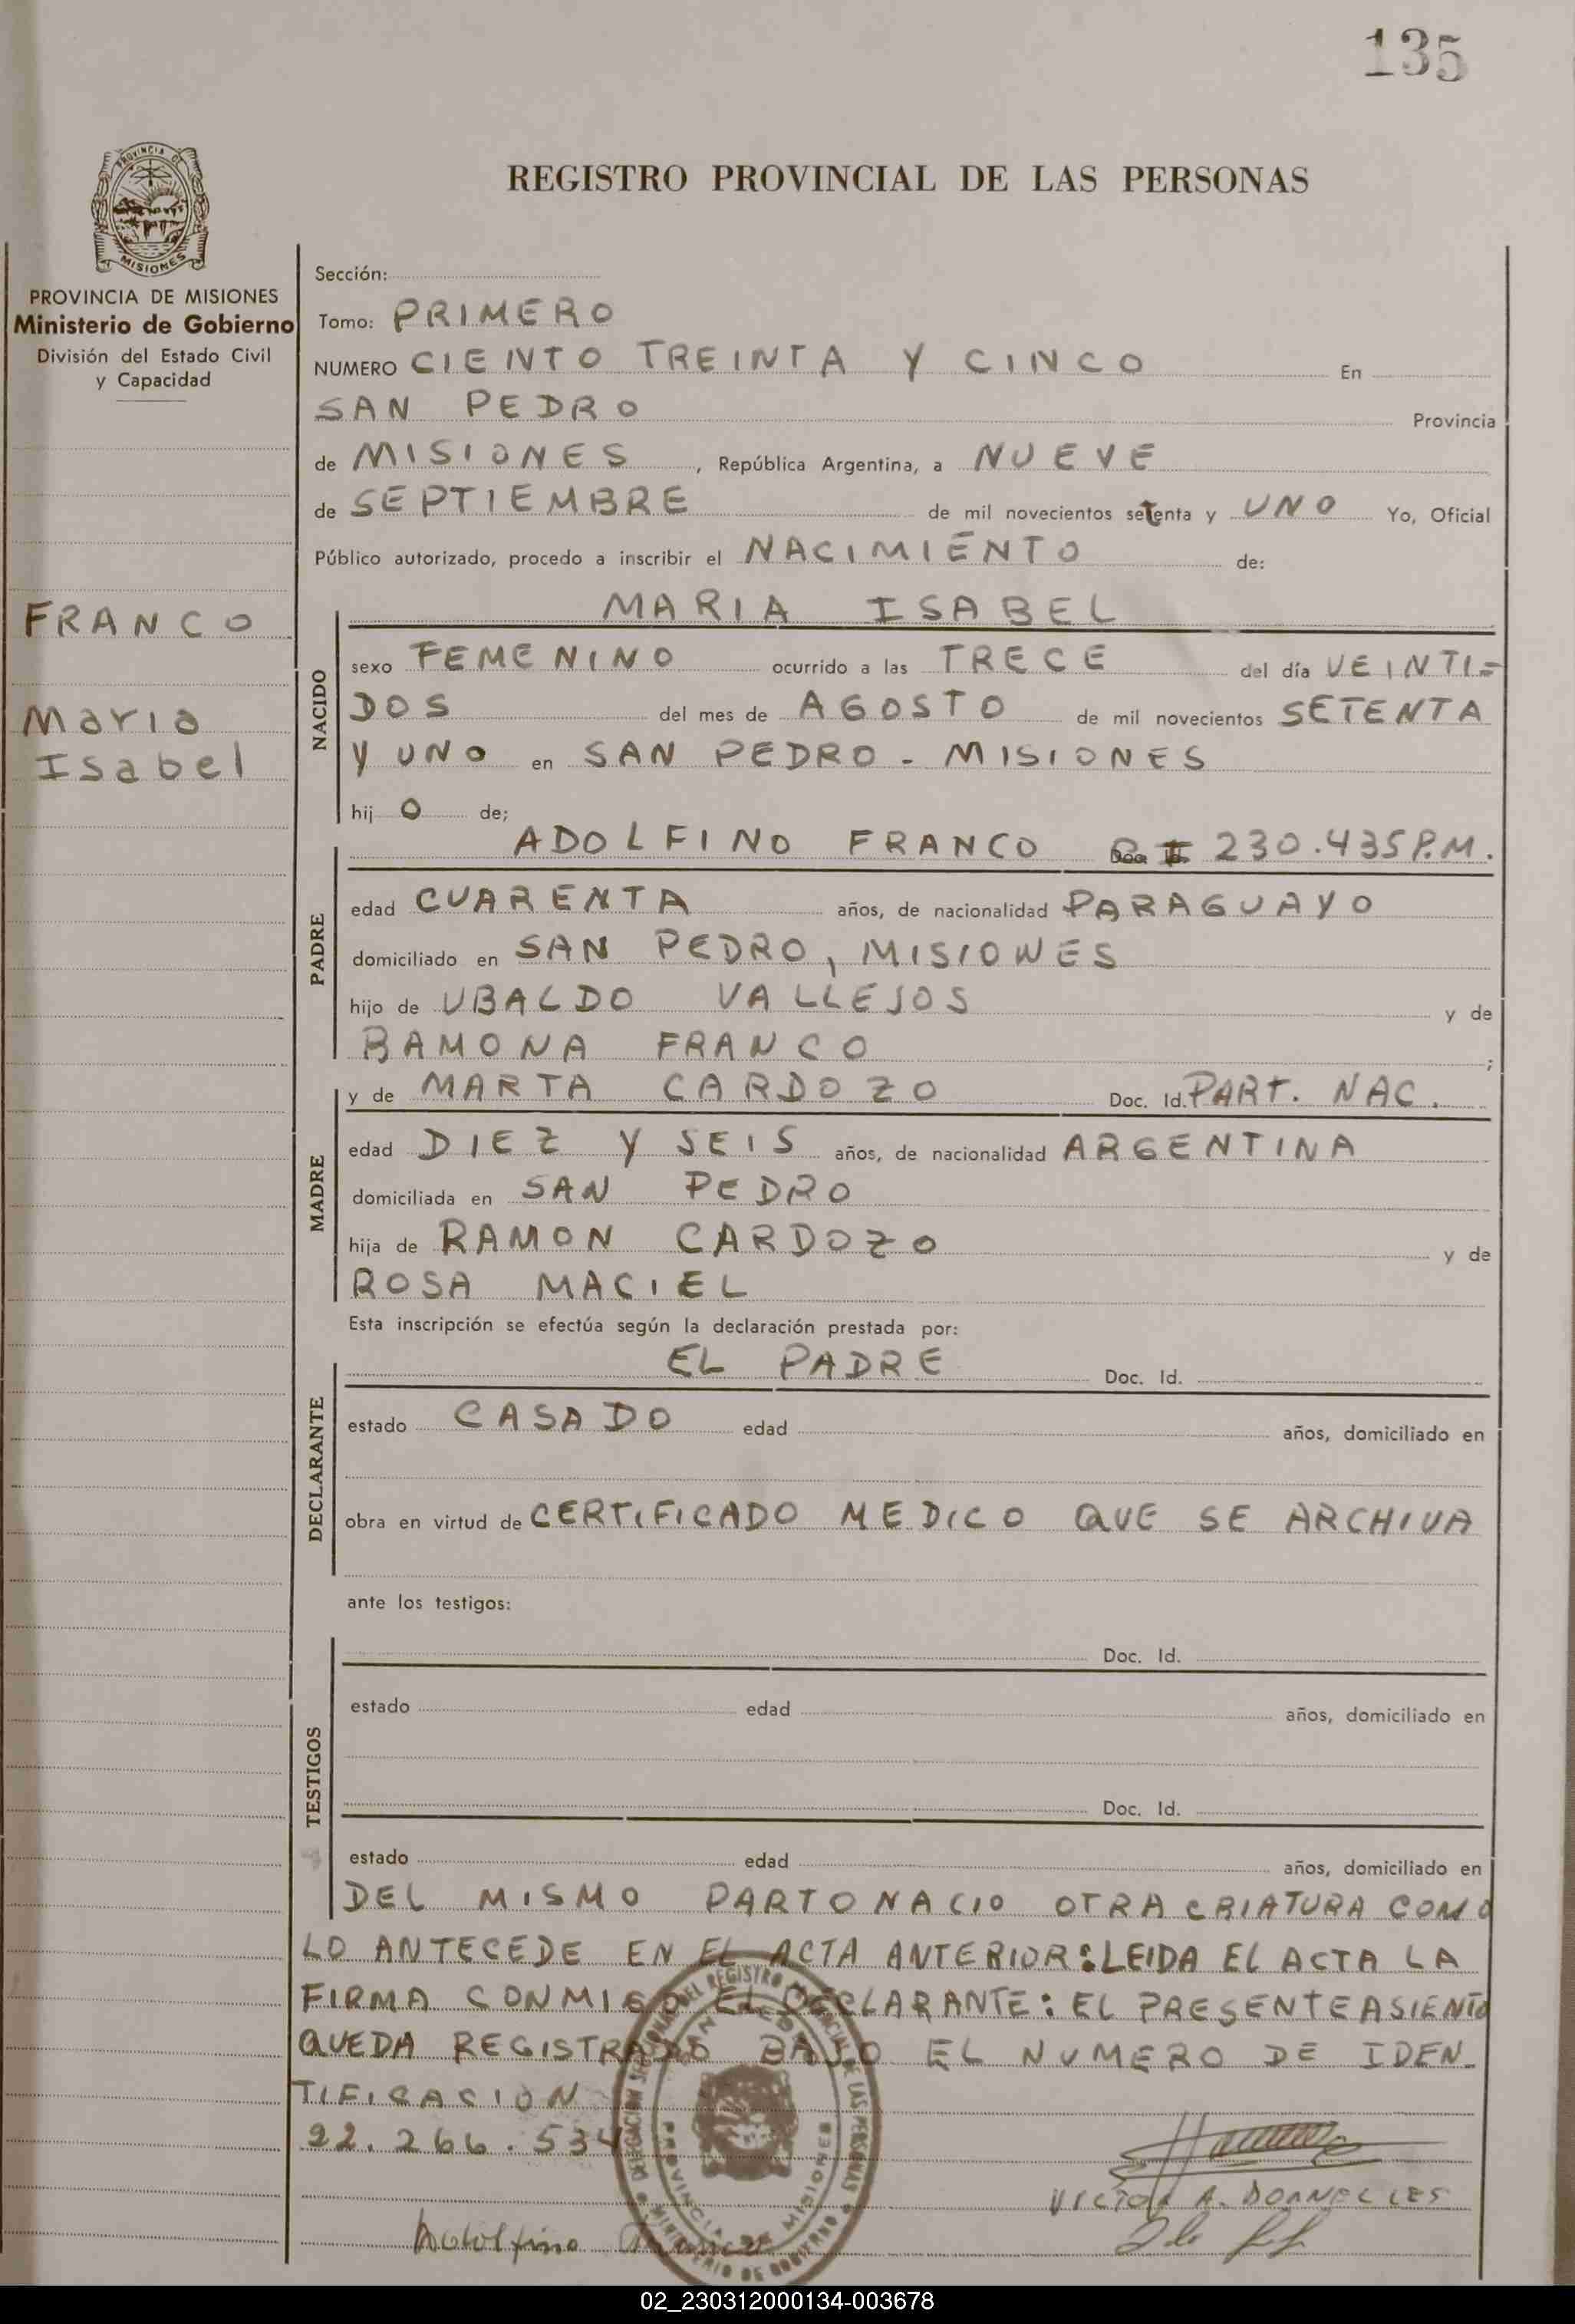 135
PROVINCIA DE
MISIONES
REGISTRO PROVINCIAL DE LAS PERSONAS
PROVINCIA DE MISIONES
Ministerio de Gobierno
División del Estado Civil
y Capacidad
FRANCO
Maria
Isabel
Sección:
Tomo: PRIMERO
NUMERO CIENTO TREINTA Y CINCO En
SAN PEDRO Provincia
de MISIONES, República Argentina, a NUEVE
de SEPTIEMBRE de mil novecientos setenta y UNO Yo, Oficial
Público autorizado, procedo a inscribir el NACIMIENTO de:
MARIA ISABEL
NACIDO
sexo FEMENINO ocurrido a las TRECE del día VEINTI=
DOS del mes de AGOSTO de mil novecientos SETENTA
Y UNO en SAN PEDRO - MISIONES
hij O de;
ADOLFINO FRANCO 230.435 P.M.
PADRE
edad CUARENTA años, de nacionalidad PARAGUAYO
domiciliado en SAN PEDRO, MISIONES
hijo de UBALDO VALLEJOS y de
RAMONA FRANCO ;
y de MARTA CARDOZO Doc. Id. PART. NAC.
MADRE
edad DIEZ Y SEIS años, de nacionalidad ARGENTINA
domiciliada en SAN PEDRO
hija de RAMON CARDOZO y de
ROSA MACIEL
Esta inscripción se efectúa según la declaración prestada por:
EL PADRE Doc. Id.
DECLARANTE
estado CASADO edad años, domiciliado en
obra en virtud de CERTIFICADO MEDICO QUE SE ARCHIVA
ante los testigos:
Doc. Id.
TESTIGOS
estado edad años, domiciliado en
Doc. Id.
estado edad años, domiciliado en
DEL MISMO PARTO NACIO OTRA CRIATURA COMO
LO ANTECEDE EN EL ACTA ANTERIOR: LEIDA EL ACTA LA
FIRMA CONMIGO EL DECLARANTE: EL PRESENTE ASIENTO
QUEDA REGISTRADO BAJO EL NUMERO DE IDEN-
TIFICACION
22.266.534
VICTOR A. DORNELLES
Adolfino Franco
PROVINCIA DE MISIONES
MINISTERIO DE GOBIERNO
02_230312000134-003678